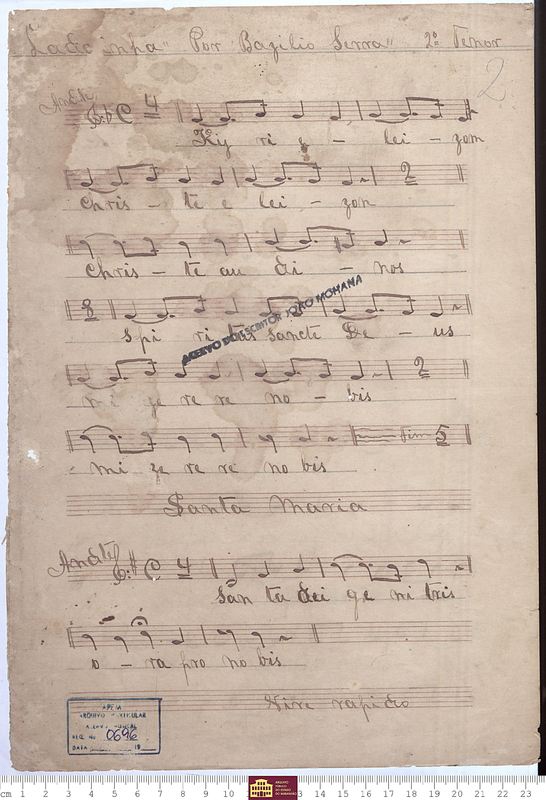 Ladainha" Por Bazilio Serra" 2º Tenor
2
Andte C 4
Ky ri e - lei - zom
2
Chris - te e lei - zon
Chris - te au di - nos
8
Spi ri tus Sancte De - us
ACERVO DO ESCRITOR JOÃO MOHANA
2
mi ze re re no - bis
Fim 5
mi ze re re no bis
Santa Maria
Andte C 4
San ta dei ge ni tris
o - ra pro no bis
Vire rapido
APEM
ARQUIVO
REG. No 0696
DATA 19
ARQUIVO PÚBLICO DO ESTADO DO MARANHÃO
cm 1 2 3 4 5 6 7 8 9 10 13 14 15 16 17 18 19 20 21 22 23